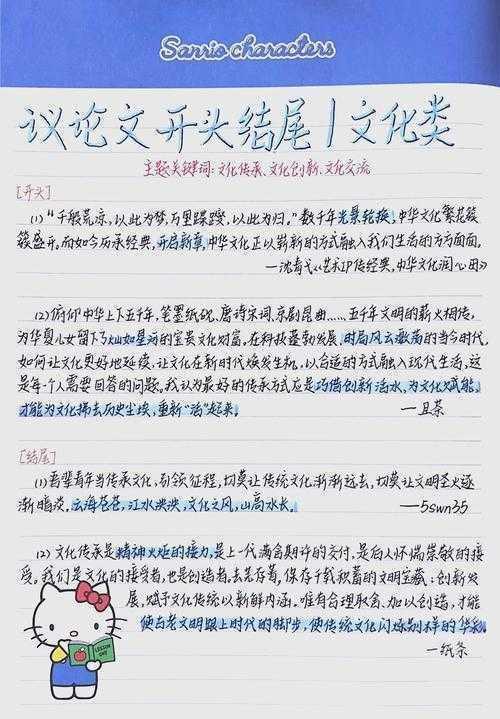 Sanrio characters
议论文开头结尾|文化类
主题关键词:文化传承、文化创新、文化交流
[开头]
(1)“千般荒凉,以此为梦,万里蹀躞,以此为归。”数千年光景轮换,中华文化繁花簇
簇盛开。而如今历承经典,开启新章,中华文化正以崭新的方式融入我们生活的方方面面。
—沈青弋《艺术IP传经典,中华文化润心田》
(2)俯仰中华上下五千年,笔墨纸砚、唐诗宋词、京剧昆曲……五千年文明的薪火相传,
为华夏儿女留下了灿如星河的宝贵文化财富。在科技蓬勃发展、时局风云激荡的当今时代,
如何让文化更好地延续、让文化在新时代焕发生机,以合适的方式融入现代生活,这
是每个人需要回答的问题。我认为最好的传承方式应是巧借创新活水,为文化赋能,
才能为文化拂去历史尘埃,重新“活”起来。 —且荼
[结尾]
(1)吾辈青年当传承文化,引领征程,切莫让传统文化渐渐远去,切莫让文明圣火逐
渐暗淡。云海苍苍,江水泱泱,文化之风,山高水长。 ——5swn35
(2)文化传承是精神火炬的接力,是上一代满含期许的交付,是后人怀揣崇敬的接
受。我们是文化的接受者,也是创造者,去芜存菁,保存千载积蓄的文明宝藏;创新发
展,赋予文化传统以新鲜内涵。唯有合理取舍、加以创造,才能
使古老文明跟上时代的脚步,使传统文化闪烁别样的华彩。
—纸条
LESSON